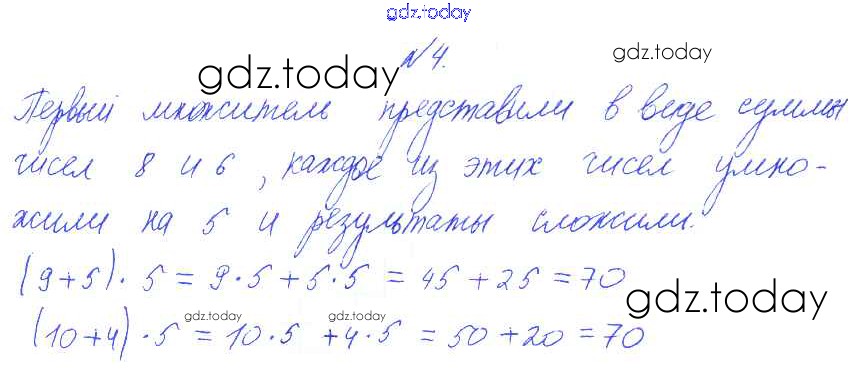 gdz.today
№4.
gdz.today
gdz.today
Первый множитель представили в веде суммы
чисел 8 и 6, каждое из этих чисел умно-
жили на 5 и результаты сложили.
(9+5)·5=9·5+5·5=45+25=70
gdz.today
gdz.today
gdz.today
(10+4)·5=10·5+4·5=50+20=70